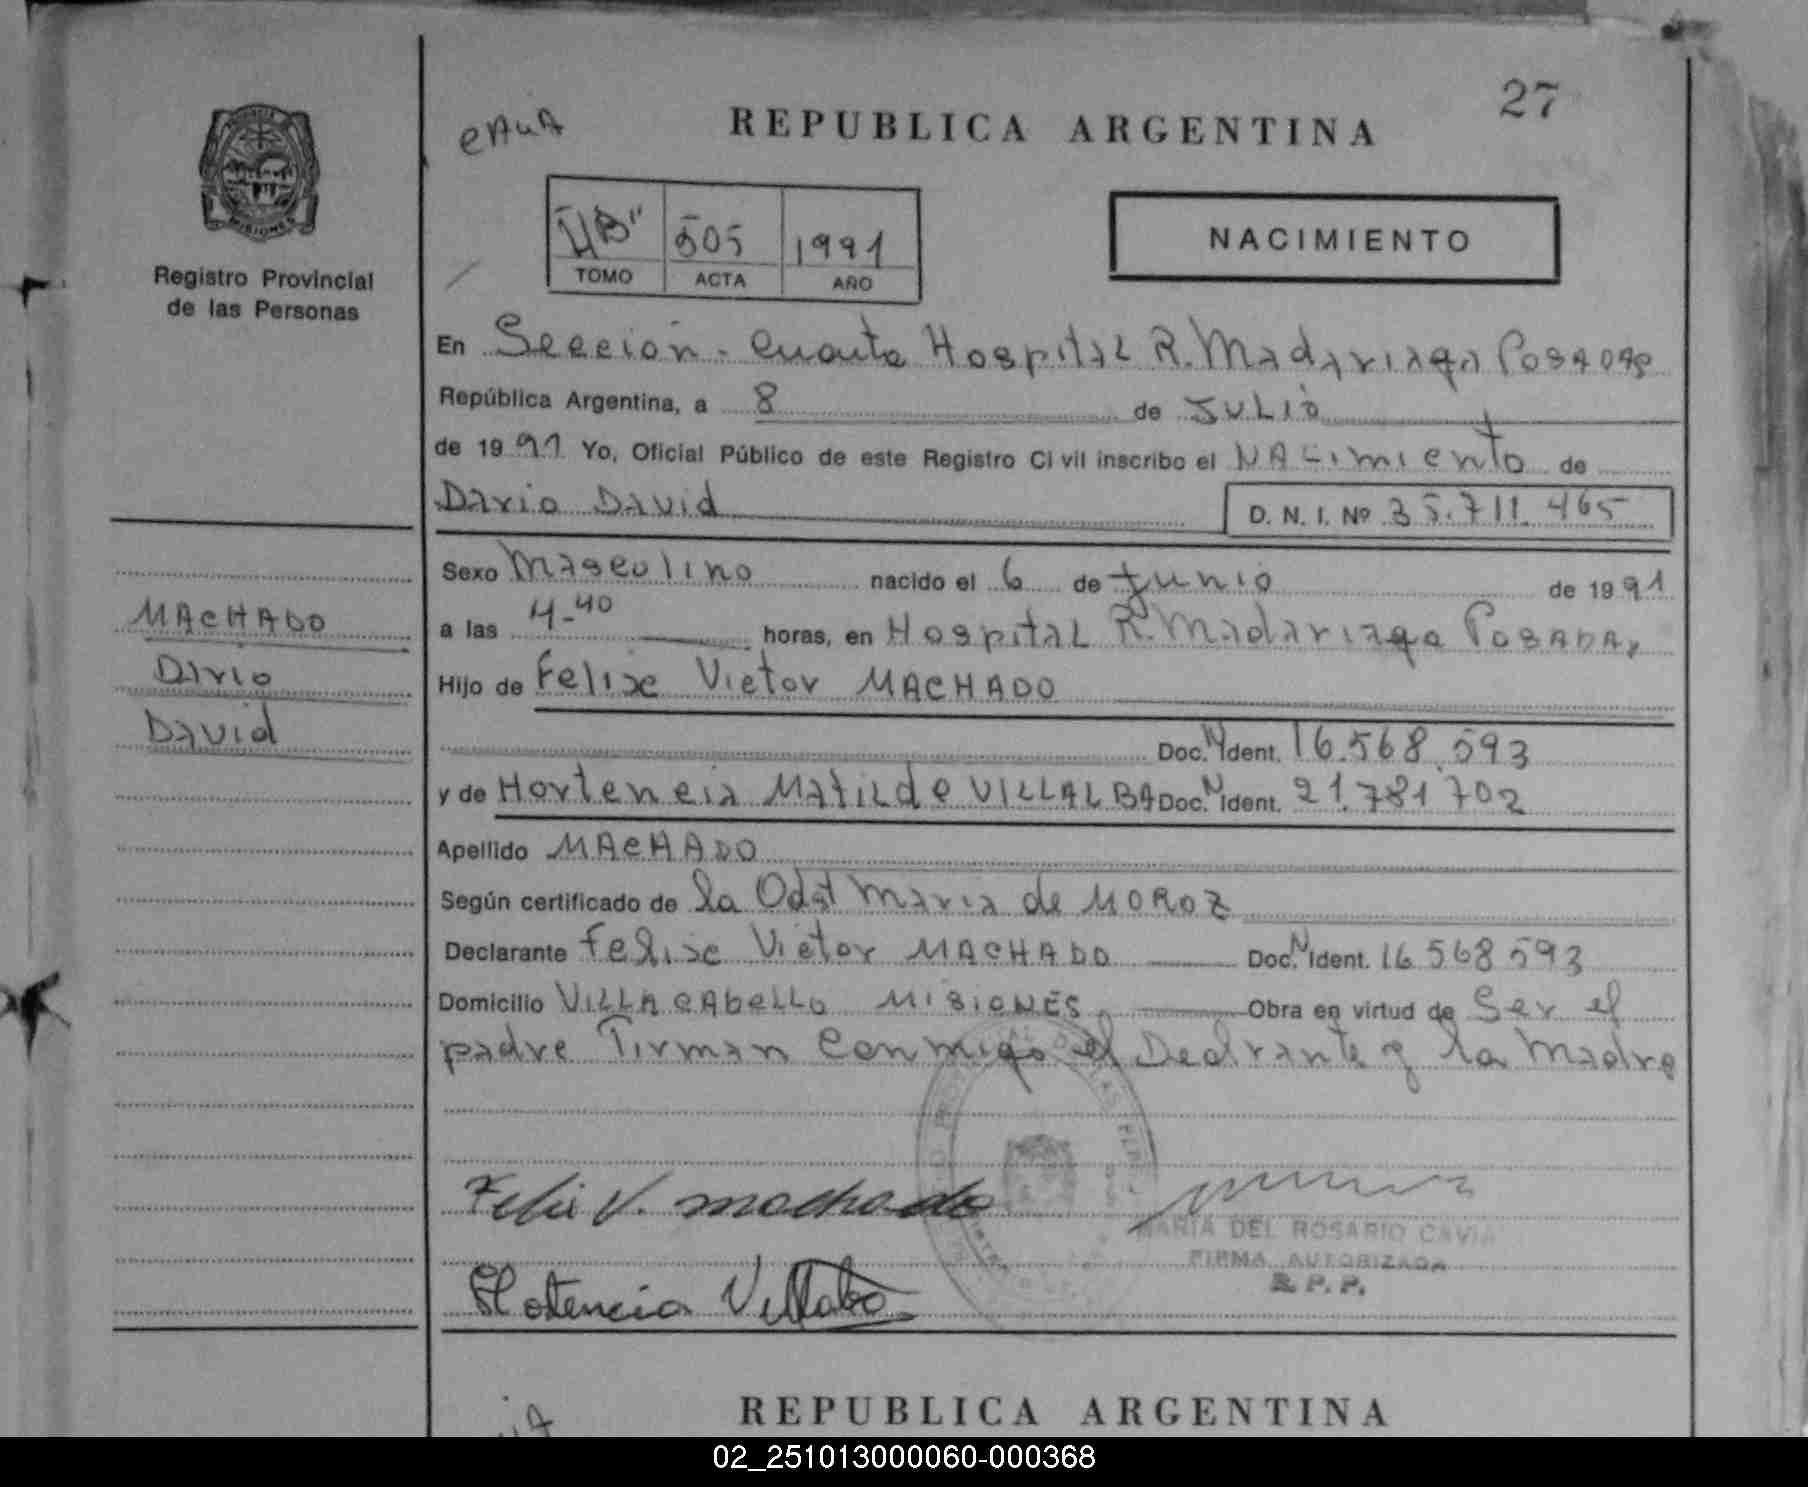 27
REPUBLICA ARGENTINA
MISIONES
Registro Provincial
de las Personas
505 1991
TOMO ACTA AÑO
NACIMIENTO
En Sección Cuarta Hospital R. Madariaga Posadas
República Argentina, a 8 de JULIO
de 1991 Yo, Oficial Público de este Registro Civil inscribo el NACimiento de
Dario David D. N. I. Nº 35.711.465
Sexo Masculino nacido el 6 de Junio de 1991
a las 4-40 horas, en Hospital R. Madariaga POSADAS
Hijo de Felix Victor MACHADO
Doc. N Ident. 16.568.593
y de Hortencia Matilde VILLALBA Doc. N Ident. 21.781.702
Apellido MACHADO
Según certificado de la Odst Maria de MOROZ
Declarante Felix Victor MACHADO Doc. N Ident. 16 568 593
Domicilio VILLA CABELLO MISIONES Obra en virtud de Ser el
padre Firman Conmigo el Declrante y la Madre
MACHADO
Dario
David
Felix V. machado
MARIA DEL ROSARIO CAVIA
FIRMA AUTORIZADA
R.P.P.
Hotencia Villalba
REPUBLICA ARGENTINA
02_251013000060-000368